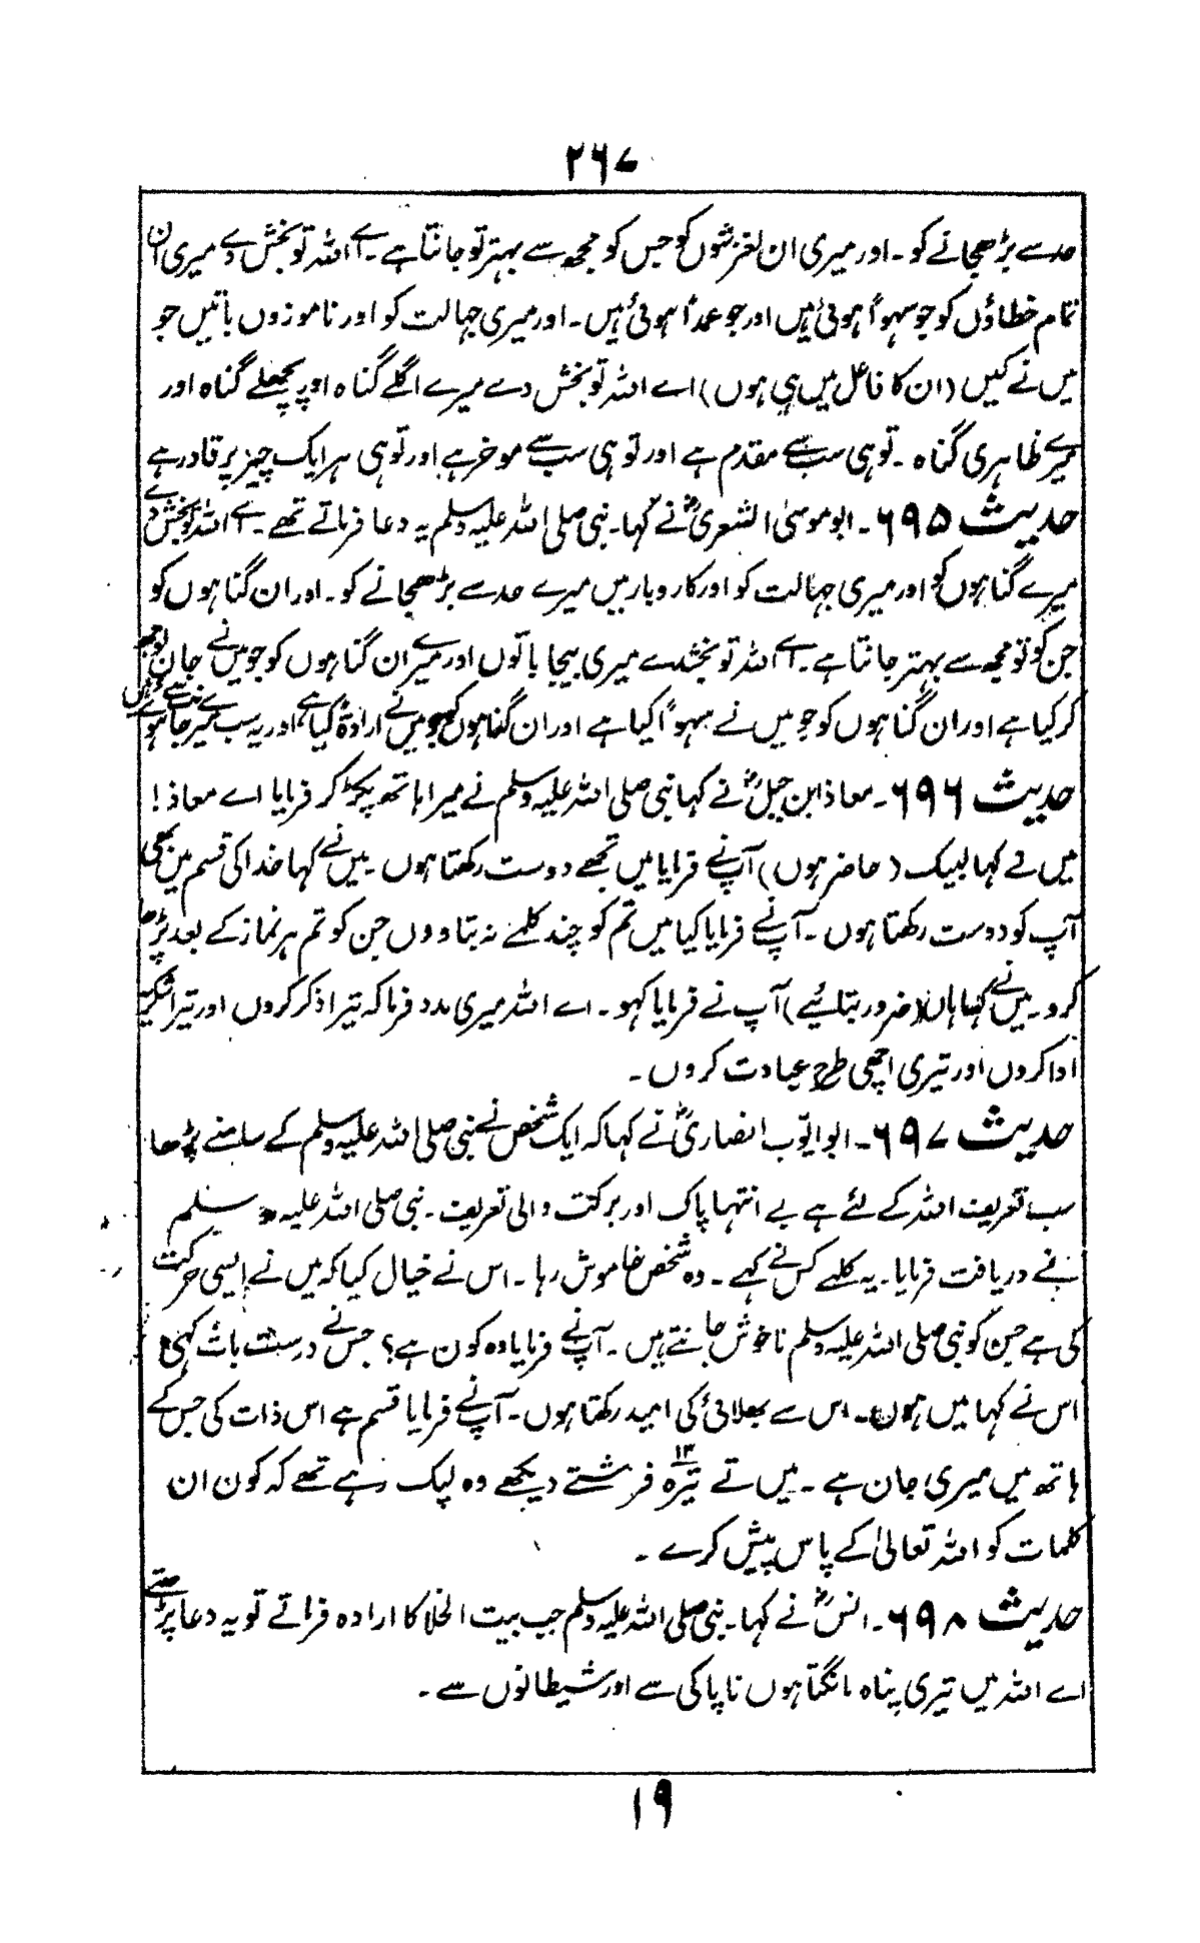 ۲۶۷
حد سے بڑھ جانے کو۔ اور میری ان لغزشوں کو جس کو مجھ سے بہتر تو جانتا ہے۔ اے اللہ تو بخش دے میری ان
تمام خطاؤں کو جو سہواً ہوئی ہیں اور جو عمداً ہوئی ہیں۔ اور میری جہالت کو اور ناموزوں باتیں جو
میں نے کیں (ان کا فاعل میں ہی ہوں) اے اللہ تو بخش دے میرے اگلے گناہ اور پچھلے گناہ اور
میرے ظاہری گناہ۔ تو ہی سب سے مقدم ہے اور تو ہی سب سے موخر ہے اور تو ہی ہر ایک چیز پر قادر ہے
حدیث ۶۹۵۔ ابو موسیٰ الشعریؓ نے کہا۔ نبی صلی اللہ علیہ وسلم یہ دعا فرماتے تھے۔ اے اللہ تو بخش دے
میرے گناہوں کو اور میری جہالت کو اور کاروبار میں میرے حد سے بڑھ جانے کو۔ اور ان گناہوں کو
جن کو تو مجھ سے بہتر جانتا ہے۔ اے اللہ تو بخشدے میری بیجا باتوں اور میرے ان گناہوں کو جو میں نے جان بوجھ
کر کیا ہے اور ان گناہوں کو جو میں نے سہواً کیا ہے اور ان گناہوں کو جو میں نے ارادۃً کیا ہے اور یہ سب میرے جانب سے ہوئے ہیں
حدیث ۶۹۶۔ معاذ ابن جبلؓ نے کہا نبی صلی اللہ علیہ وسلم نے میرا ہاتھ پکڑ کر فرمایا اے معاذ!
میں نے کہا لبیک (حاضر ہوں) آپ نے فرمایا میں تجھے دوست رکھتا ہوں۔ میں نے کہا خدا کی قسم میں بھی
آپ کو دوست رکھتا ہوں۔ آپ نے فرمایا کیا میں تم کو چند کلمے نہ بتا دوں جن کو تم ہر نماز کے بعد پڑھا
کرو۔ میں نے کہا ہاں (ضرور بتائیے) آپ نے فرمایا کہو۔ اے اللہ میری مدد فرما کہ تیرا ذکر کروں اور تیرا شکریہ
ادا کروں اور تیری اچھی طرح عبادت کروں۔
حدیث ۶۹۷۔ ابو ایوب انصاریؓ نے کہا کہ ایک شخص نے نبی صلی اللہ علیہ وسلم کے سامنے پڑھا
سب تعریف اللہ کے لئے ہے بے انتہا پاک اور برکت والی تعریف۔ نبی صلی اللہ علیہ وسلم
نے دریافت فرمایا۔ یہ کلمے کس نے کہے۔ وہ شخص خاموش رہا۔ اس نے خیال کیا کہ میں نے ایسی حرکت
کی ہے جن کو نبی صلی اللہ علیہ وسلم ناخوش جانتے ہیں۔ آپ نے فرمایا وہ کون ہے؟ جس نے درست بات کہی
اس نے کہا میں ہوں۔ اس سے بھلائی کی امید رکھتا ہوں۔ آپ نے فرمایا قسم ہے اس ذات کی جس کے
ہاتھ میں میری جان ہے۔ میں نے تیرہ ۱۳ فرشتے دیکھے وہ لپک رہے تھے کہ کون ان
کلمات کو اللہ تعالیٰ کے پاس پیش کرے۔
حدیث ۶۹۸۔ انسؓ نے کہا۔ نبی صلی اللہ علیہ وسلم جب بیت الخلا کا ارادہ فرماتے تو یہ دعا پڑھتے
اے اللہ میں تیری پناہ مانگتا ہوں ناپاکی سے اور شیطانوں سے۔
۱۹